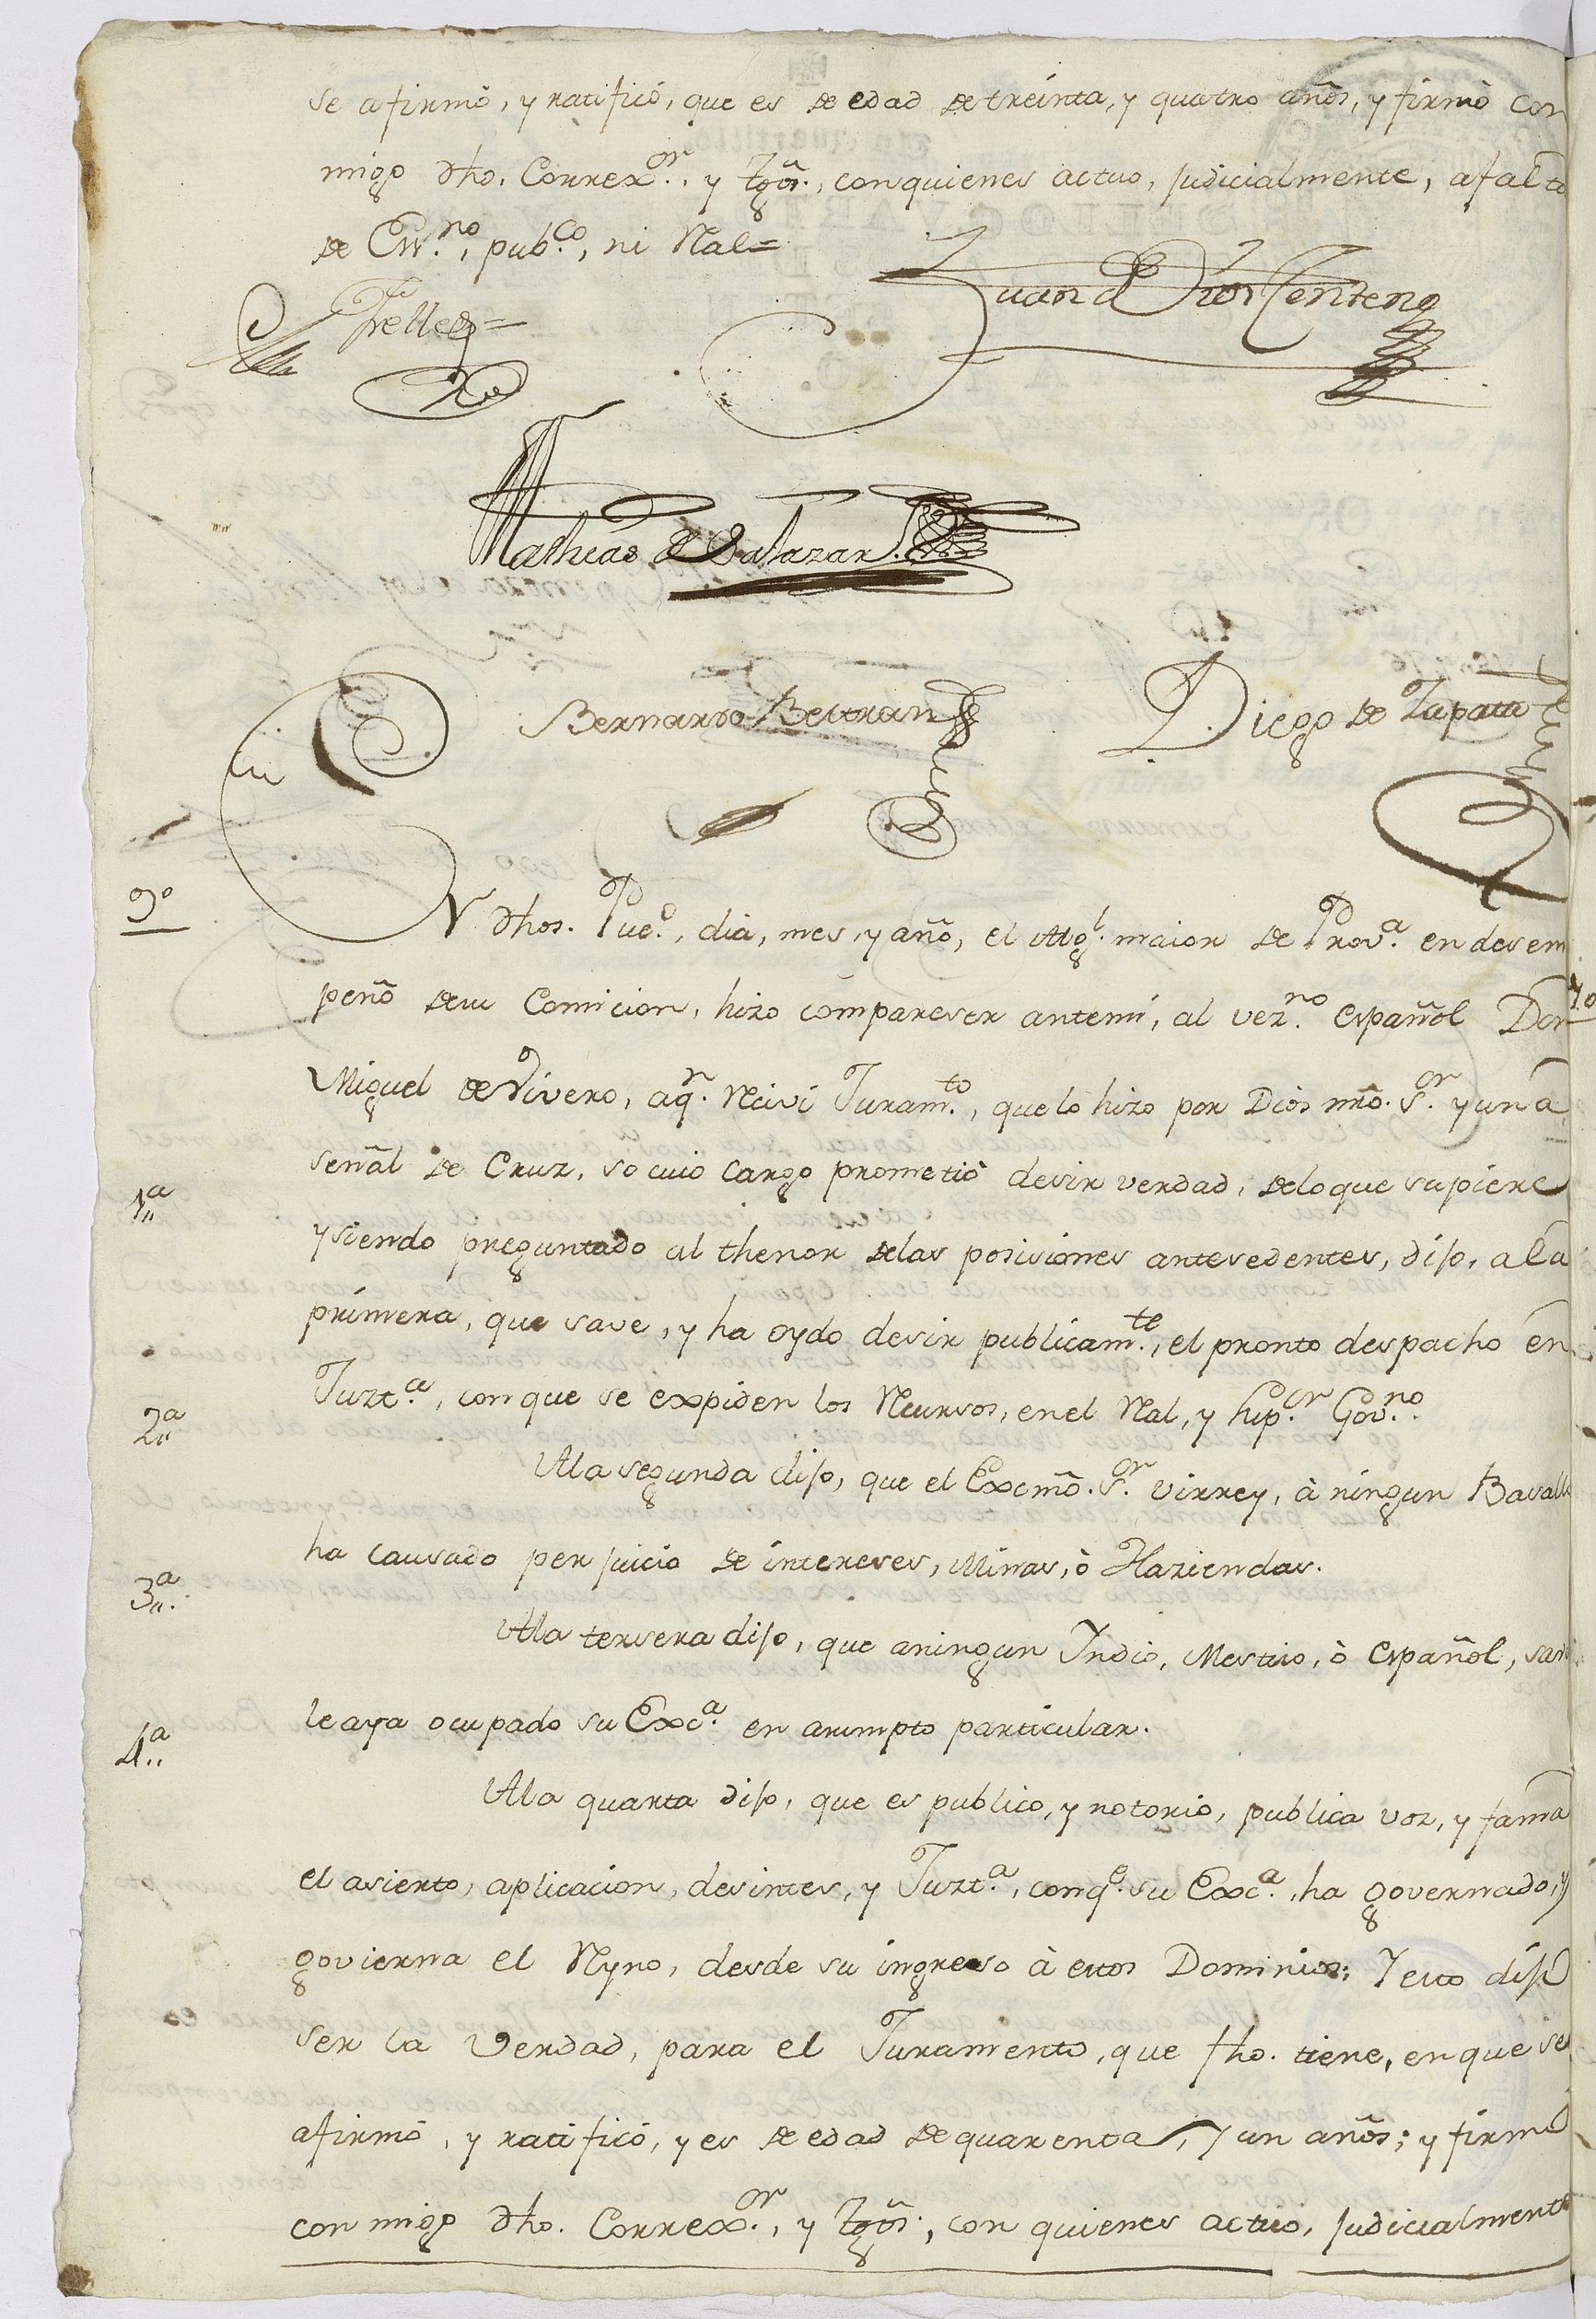 se afirmó, y ratificó, que es de edad de treinta, y quatro años, y firmó con
migo dho. Correx.or, y tgõs., con quienes actuo, judicialmente, afalta
de Ess.no, pub.co, ni Ral=
Telles=
Juan de Dios Zenteno
Mathias de Salazar
Bernardo Beltran
Diego de Zapata
9º
En dhos. Pue.o, dia, mes, y año, el Alg.l maior de Prov.a en desem
peño desu Comicion, hizo compareser antemi, al vez.no español Don
Miguel de Vivero, aq.n Reciví Juram.to, que lo hizo por Dios nrõ. S.or y una
señal de Cruz, so cuio cargo prometió desir verdad, delo que supiere
1.a
y siendo preguntado al thenor delas posisiones antesedentes, dijo, a la
primera, que save, y ha oydo desir publicam.te, el pronto despacho en
Juzt.a, con que se expiden los Recursos, en el Ral, y Sup.or Gov.no
2.a
Ala segunda dijo, que el Excmõ. S.or Virrey, à ningun Basallo
ha causado perjuicio de intereses, Minas, ò Haziendas.
3.a
Ala tersera dijo, que aningun Indio, Mestiso, ò español, save
le aya ocupado su Exc.a en asumpto particular.
4.a
Ala quarta dijo, que es publico, y notorio, publica voz, y fama
el asierto, aplicacion, desintes, y Juzt.a, conq.e su Exc.a, ha governado, y
govierna el Ryno, desde su ingreso à estos Dominios; Y esto dijo
ser la Verdad, para el Juramento, que fho. tiene, en que se
afirmó, y ratificó, y es de edad de quarenta, Y un años; y firmó
con migo dho. Correx.or, y tgõs., con quienes actuo, judicialmente